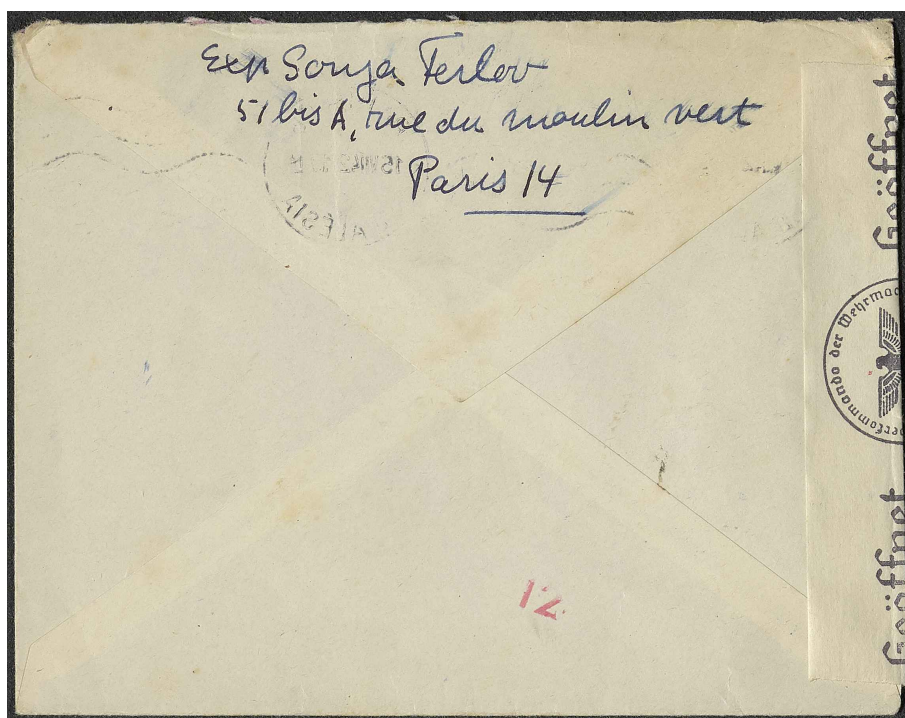 Exp Sonja Ferlov
51 bis A, rue du moulin vert
Paris 14
ALÉSIA
Geöffnet
Oberkommando der Wehrmac
Geöffnet
12